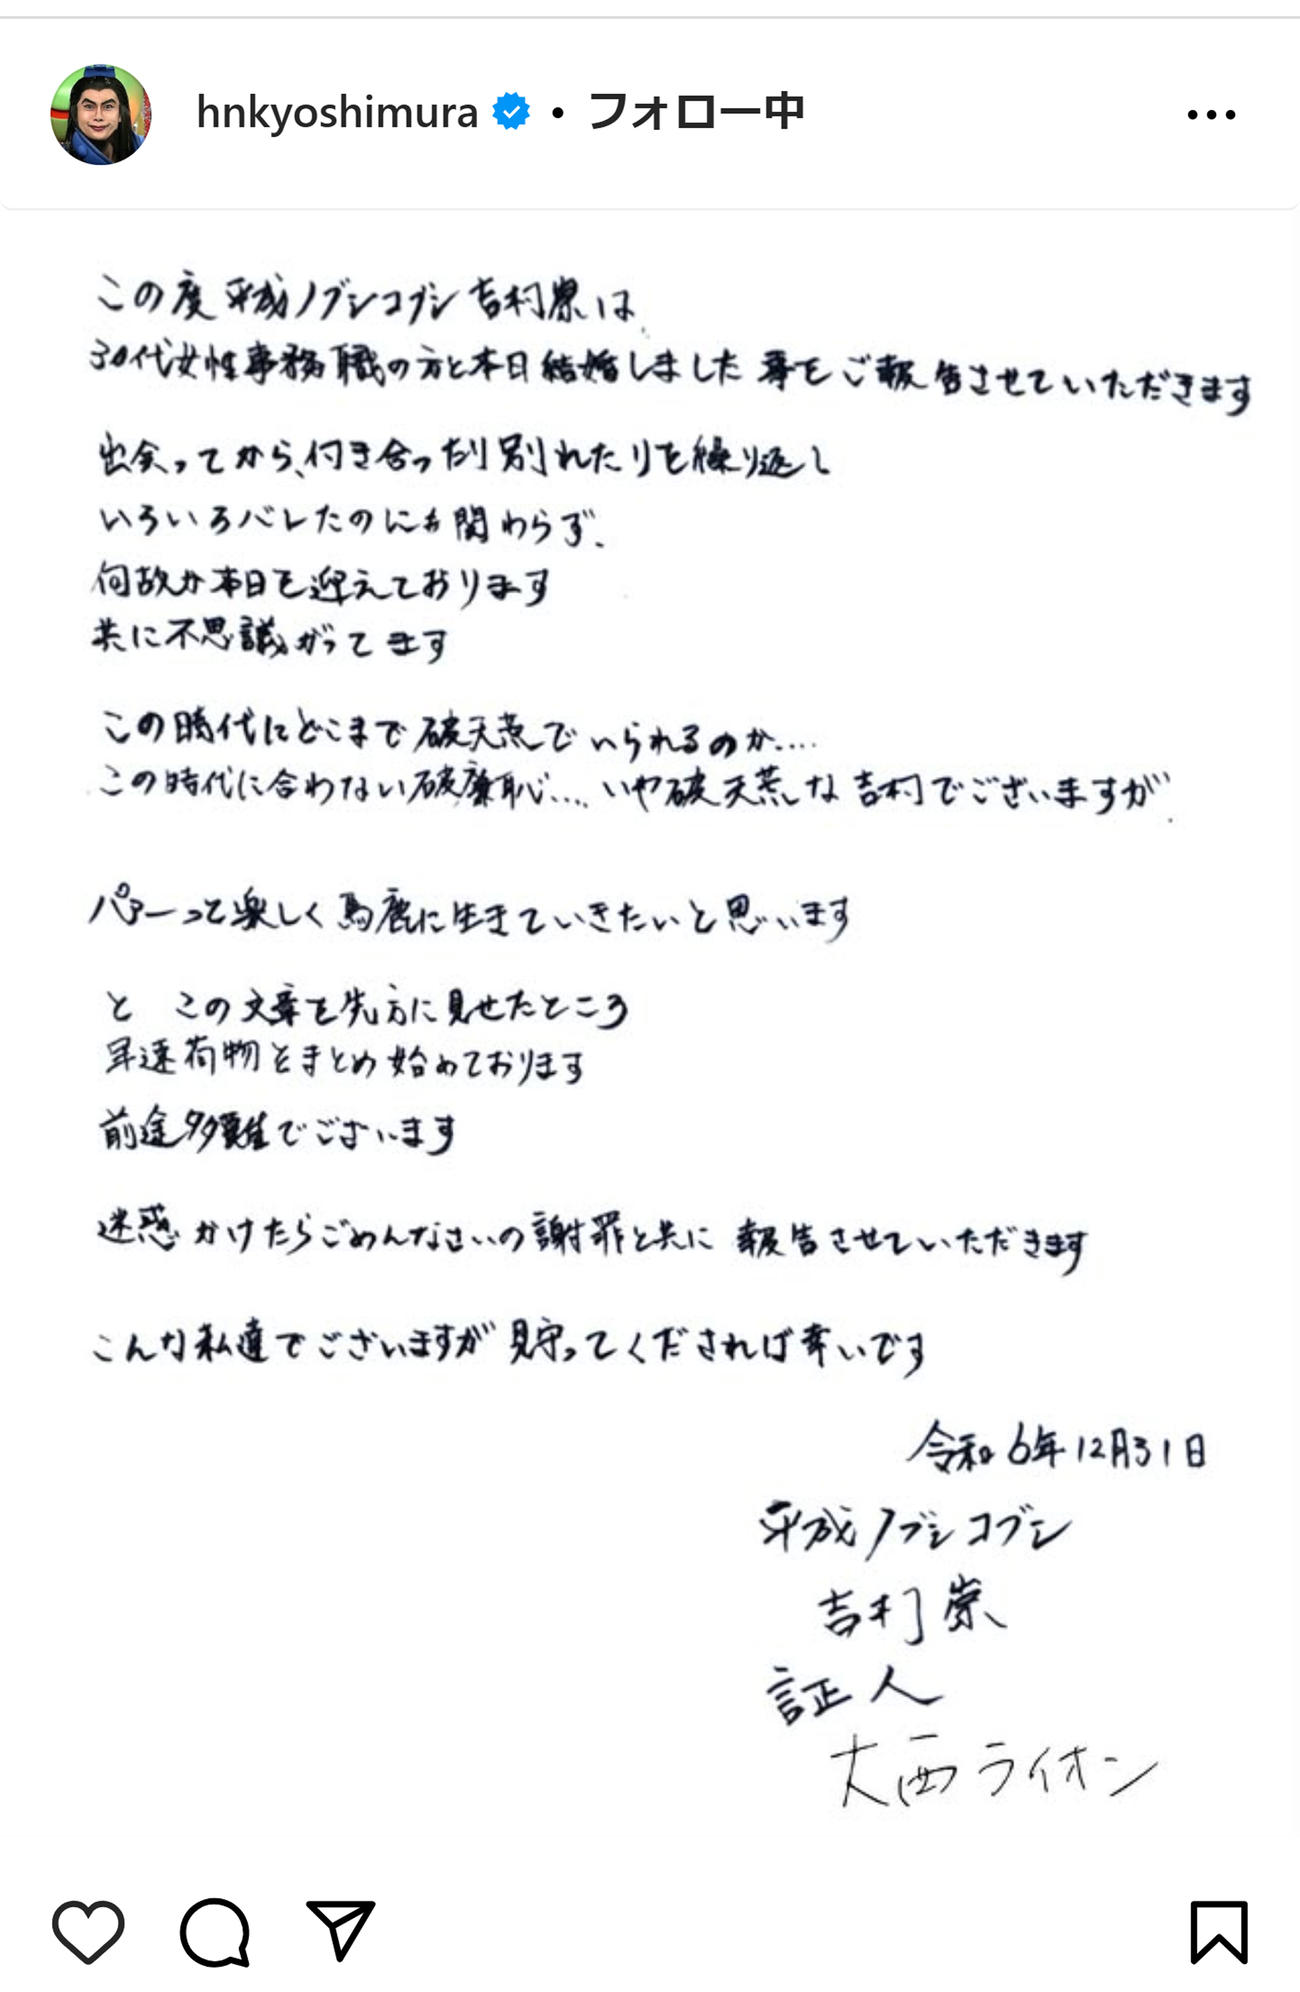 hnkyoshimura • フォロー中
この度 平成ノブシコブシ 吉村崇は
30代女性事務職の方と本日結婚しました事をご報告させていただきます
出会ってから、付き合ったり別れたりを繰り返し
いろいろバレたのにも関わらず、
何故か本日を迎えております
共に不思議がってます
この時代にどこまで破天荒でいられるのか....
この時代に合わない破廉恥.... いや破天荒な吉村でございますが
パァーっと楽しく馬鹿に生きていきたいと思います
と この文章を先方に見せたところ
早速荷物をまとめ始めております
前途多難でございます
迷惑かけたらごめんなさいの謝罪と共に 報告させていただきます
こんな私達でございますが 見守ってくだされば幸いです
令和6年12月31日
平成ノブシコブシ
吉村崇
証人
大西ライオン